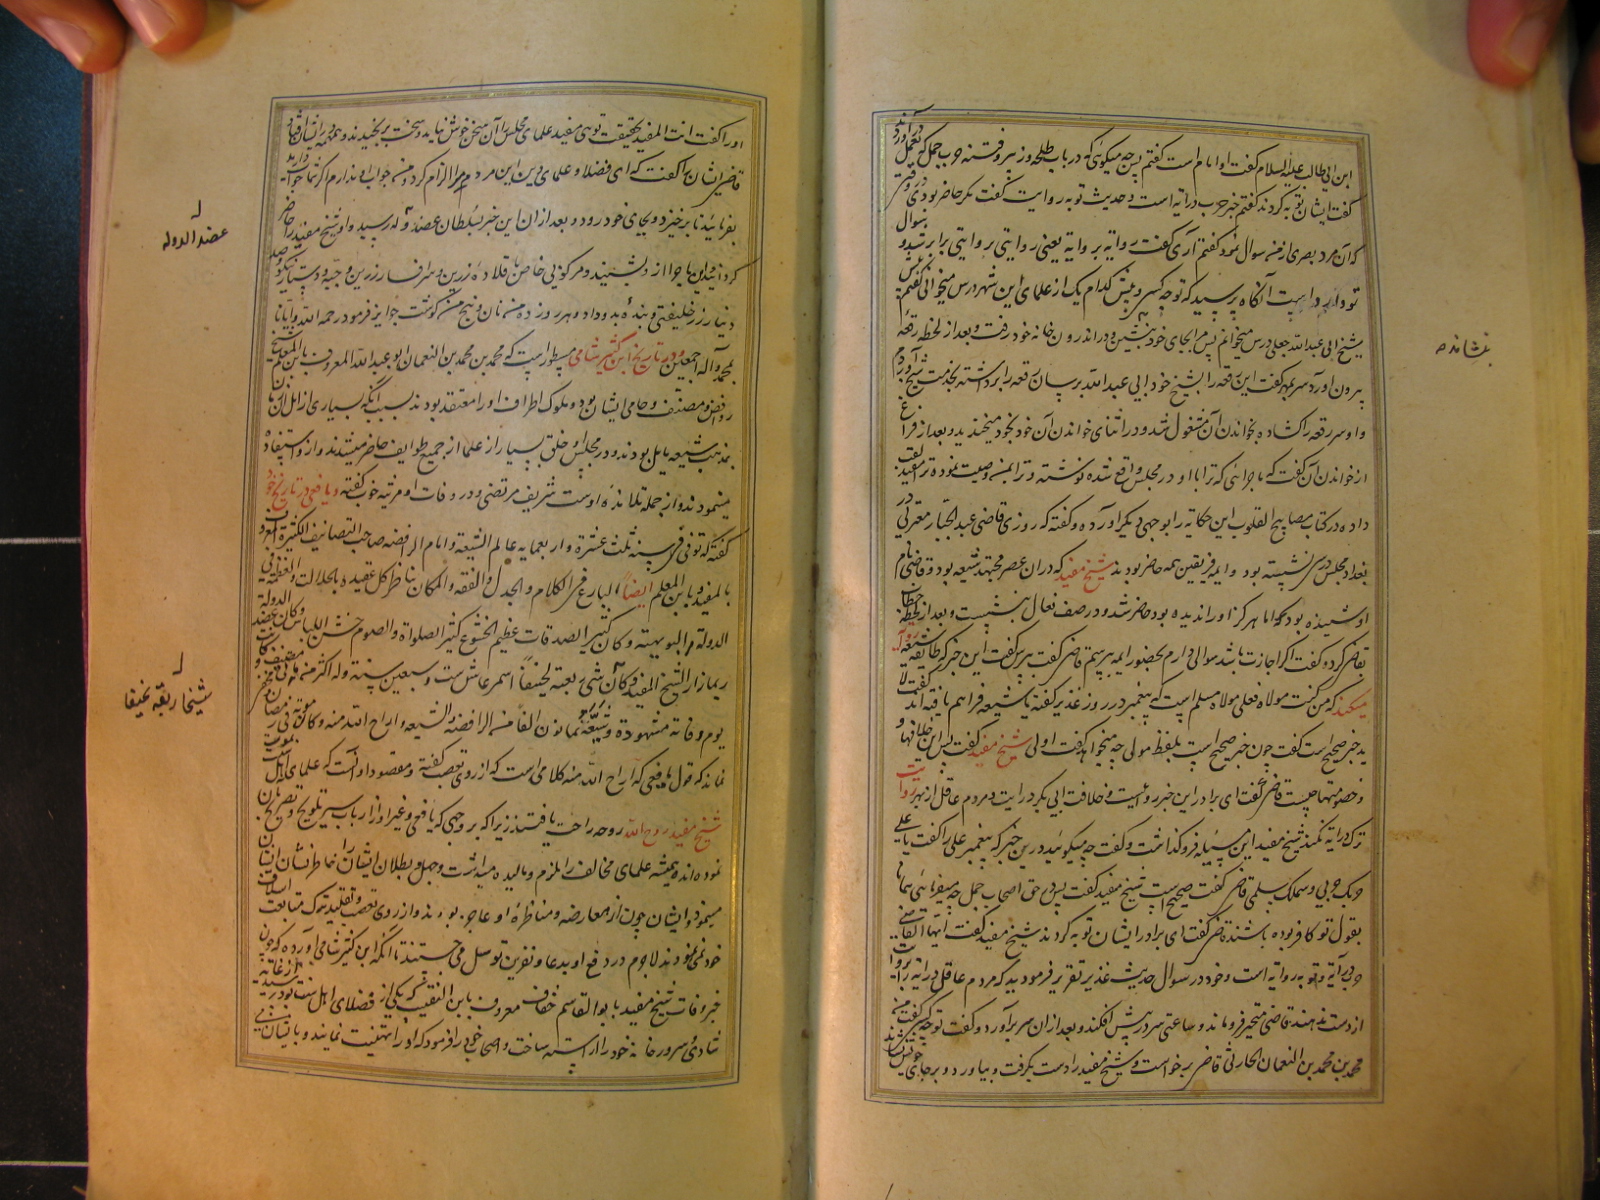 ابن ابی طالب علیه السلام گفت او امام است گفتم پس چه میکوئی که در باب طلحه و زبیر و فتنه حرب جمل که
گفت ایشان توبه کردند گفتم خبر حرب درایه است و حدیث توبه روایت گفت مکر حاضر بودی در وقتی
که آن مرد بصری از من سوال نمود گفتم آری گفت روایه بر وایه یعنی روایتی بر وایتی برابر شد و سوال
تو وارد است آنگاه پرسید که تو چه کسی و پیش کدام یک از علمای این شهر درس میخوانی گفتم پیش
شیخ ابی عبد الله جعلی درس میخوانم پس بجای خود بنشین و در اندرون خانه خود رفت و بعد از لحظه رقعه
بیرون آورد سر بمهر گفت این رقعه را بشیخ خود ابی عبد الله برسان رقعه را برداشته بخدمت شیخ آوردم
و او سر رقعه را گشاده بخواندن آن مشغول شد و در اثنای خواندن آن خود بخود میخندید و بعد از فراغ
از خواندن آن گفت که ماجرائی که ترا با او در مجلس واقع شده نوشته و ترا بمن وصیت نموده ترا مفید لقب
داده در کتاب مصابیح القلوب این حکایه را بوجهی دیکر آورده و گفته که روزی قاضی عبد الجبار معتزلی در
بغداد مجلس درس نشسته بود و ایمه فریقین همه حاضر بودند شیخ مفید که در آن عصر مجتهد شیعه بود و قاضی نام
او شنیده بود اما هر کز او را ندیده بود حاضر شد و در صف نعال بنشست و بعد از لحظه خطاب
بقاضی کرد و گفت اکر اجازت باشد سوالی دارم بحضور ایمه بپرسم قاضی گفت بپرس گفت این خبر که طایفه شیعه روایه
میکنند که من کنت مولاه فعلی مولاه مسلم است که پیغمبر در روز غدیر گفته یا شیعه فراهم بافته اند گفت
بد خبر صحیح است گفت چون خبر صحیح است بلفظ مولی چه میخواهد گفت اولی شیخ مفید گفت پس این خلافها و
و خصومتها چیست قاضی گفت ای برادر این خبر روایت است و خلافت ابی بکر درایت و مردم عاقل از بهر روایت
ترک درایه نکنند شیخ مفید این مسئله فرو گذاشت و گفت چه میکوئید درین خبر که پیغمبر علی را گفت یا علی
حربک حربی و سلمک سلمی قاضی گفت صحیح است شیخ مفید گفت پس در حق اصحاب جمل چه میفرمائی بنا
بقول تو کافر بوده باشند قاضی گفت ای برادر ایشان توبه کردند شیخ مفید گفت ایها القاضی
حرب درایه و توبه روایه است و خود در سوال حدیث غدیر تقریر فرمودید که مردم عاقل درایه بروایت
از دست ندهند قاضی متحیر فرو ماند و ساعتی سر در پیش افکند و بعد از آن سر برآورد و گفت تو چه کسی گفت من
محمد بن محمد بن النعمان الحارثی قاضی برخواست و شیخ مفید را دست بگرفت و بیاورد و بر جای خویش نشاند
نشانده
او را گفت انت المفید بحقیقت توئی مفید علمای مجلس را آن سخن خوش نیامد و سخت برنجیدند و همهمه در ایشان افتاد
قاضی ایشان را گفت که ای فضلا و علمای دین این مرد مرا الزام کرد و من جواب او ندارم اکر شما جواب دارید
بفرمائید تا برخیزد و بجای خود رود و بعد از آن این خبر بسلطان عضد الدوله رسید و او شیخ مفید را حاضر
کردانید و این ماجرا از و شنید و مرکوبی خاص با قلاده زرین و سرافسار زرین و جبه و دستار نیکو و صد
دینار زر خلیفتی و بنده بدو داد و هر روز ده من نان و پنج من گوشت جوایز فرمود رحمه الله و ایانا
بمحمد و آله اجمعین و در تاریخ ابن کثیر شامی مسطور است که محمد بن محمد بن النعمان ابو عبد الله المعروف بابن المعلم شیخ
روافض و مصنف و حامی ایشان بود و ملوک اطراف او را معتقد بودند بسبب آنکه بسیاری از اهل آن زمان
بمذهب شیعه مایل بودند و در مجلس او خلق بسیار از علما از جمیع طوایف حاضر میشدند و از و استفاده
مینمودند و از جمله تلامذه اوست شریف مرتضی و در وفات او مرثیه خوب گفته و یافعی در تاریخ خود
گفته که توفی فی سنه ثلث عشرة و اربعمایه عالم الشیعه و امام الرافضه صاحب التصانیف الکثیره المعروف
بالمفید و بابن المعلم ایضاً البارع فی الکلام و الجدل و الفقه و المکان یناظر کل عقیده بالجلالت و العظمه فی
الدوله البویهیته و کان کثیر الصدقات عظیم الخشوع کثیر الصلواة و الصوم خشن اللباس و کان عضد الدوله
ربما زار الشیخ المفید و کان شیخاً ربعة نحیفاً اسمر عاش ست و سبعین سنه و له اکثر من مائتی مصنف و کانت
یوم وفاته مشهودة و شیعه ثمانون الفاً من الرافضه الشیعه و اراح الله منه و کان موته فی رمضان
نماند که قول یافعی که اراح الله منه کلامی است که از روی تعصب گفته و مقصود او آنست که علمای اهل
شیخ مفید روح الله روحه راحت یافتند زیرا که بر وجهی که یافعی و غیر او از ارباب سیر تلویح و تصریح
نموده اند همیشه علمای مخالف را ملزم و مالیده میداشت و جهل و بطلان ایشان را خاطر نشان ایشان
مینمود و ایشان چون از معارضه و مناظره او عاجز بودند و از روی تعصب و تقلید ترک متابعت اسلاف
خود نمی نمودند لاجرم در دفع او بدعا و نفرین توسل می جستند تا آنکه ابن کثیر شامی آورده که چون
خبر وفات شیخ مفید بابو القاسم خفاف معروف بابن النقیب که یکی از فضلای اهل سنت بود رسید از غایه
شادی و سرور خانه خود را آراسته ساخت و اصحاب خود را فرمود که او را تهنیت نمایند و با ایشان
عضد الدوله
شیخا ربعة نحیفا